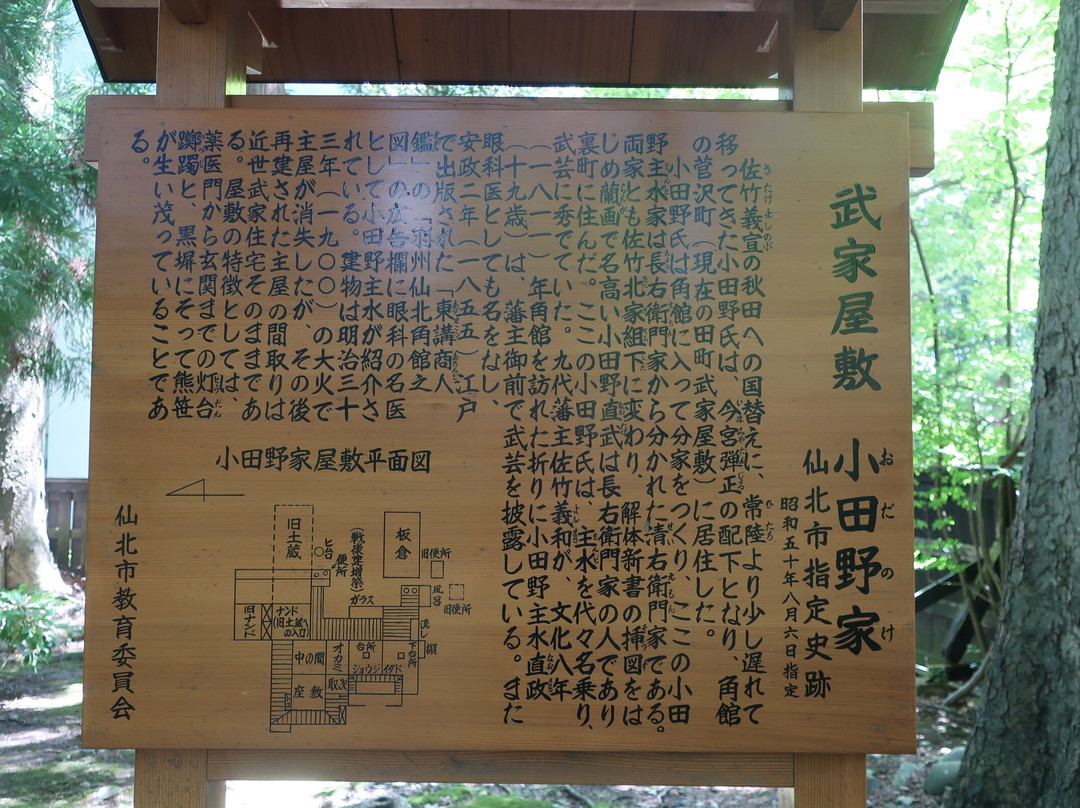 武家屋敷 小田野家
仙北市指定史跡
昭和五十年八月六日指定
佐竹義宣の秋田への国替えに、常陸より少し遅れて
移ってきた小田野氏は、今宮弾正の配下となり、角館
の菅沢町（現在の田町武家屋敷）に居住した。
小田野氏は角館に入って分家をつくり、ここの小田
野主水家は長右衛門家から分かれた清右衛門家である。
両家とも佐竹北家組下に変わり、解体新書の挿図をは
じめ蘭画で名高い小田野直武は長右衛門家の人であり
裏町に住んだ。ここの小田野氏は、主水を代々名乗り、
武芸に秀でていた。九代藩主佐竹義和が、文化八年
（一八一一）年角館を訪れた折りに小田野主水直政
（十九歳）は、藩主御前で武芸を披露している。また
眼科医としても名をなし、
安政二年（一八五五）江戸
で出版された「東講商人
鑑」の「羽州仙北角館之
図」の広告欄に眼科の名医
として小田野主水が紹介さ
れている。建物は明治三十
三年（一九〇〇）の大火で
主屋が消失したが、その後
再建された主屋の間取りは
近世武家住宅そのままであ
る。屋敷の特徴としては、
薬医門から玄関までの灯台
躑躅と、黒塀にそって熊笹
が生い茂っていることであ
る。
小田野家屋敷平面図
旧土蔵
ヒ台
便所
（戦後建増築）
ガラス
板倉
旧便所
風呂
旧便所
旧ナンド
ナンド
（旧土蔵への入口）
中の間
オカミ
台所
流し
下台所
棚
ショウジイタド
座敷
取次
仙北市教育委員会